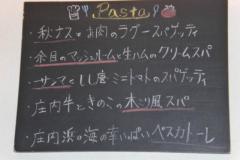 Pasta
・秋ナスとお肉のラグースパゲッティ
・余目のマッシュルームと生ハムのクリームスパ
・サンマとしし唐 ミニトマトのスパゲッティ
・庄内牛ときのこの木こり風スパ
・庄内浜の海の幸いっぱいペスカトーレ